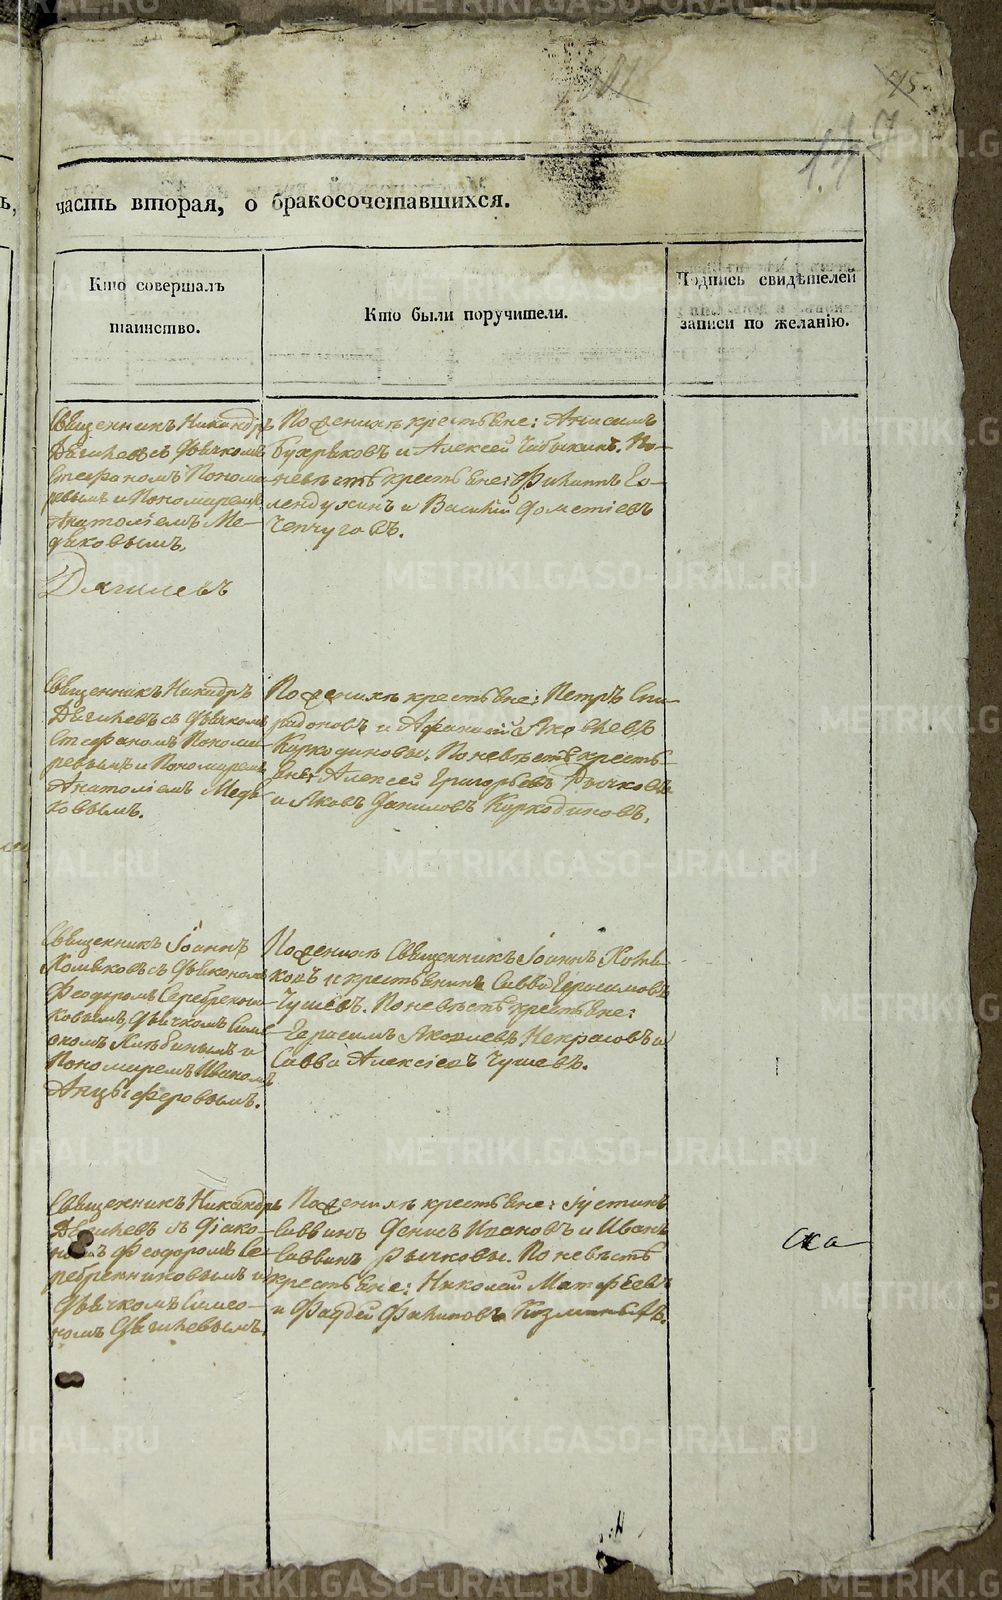 METRIKI.GASO-URAL.RU
75
117
часть вторая, о бракосочетавшихся.
Кто совершалъ
таинство.
Кто были поручители.
Подпись свидѣтелей
записи по желанію.
Священникъ Никандръ
Дягилевъ съ Дьячкомъ
Стефаномъ Понома-
ревымъ и Пономаремъ
Анатоліемъ Ме-
дяковымъ.
Дягилевъ
По женихѣ крестьяне: Анисимъ
и Алексей По
невѣстѣ крестьяне: Филиппъ Го-
лендухинъ и Василій Дометіевъ
Чепчуговъ.
Священникъ Никандръ
Дягилевъ съ Дьячкомъ
Стефаномъ Понома-
ревымъ и Пономаремъ
Анатоліемъ Медя-
ковымъ.
По женихѣ крестьяне: Петръ Спи-
ридоновъ и Афанасій Яковлевъ
Коркодиновы. По невѣстѣ кресть-
яне: Алексей Григорьевъ Рычковъ
и Яковъ Даниловъ Коркодиновъ.
Священникъ Іоаннъ
съ Дьякономъ
Феодоромъ Серебренни-
ковымъ, Дьячкомъ Симе-
ономъ и
Пономаремъ Иваномъ
Анцыферовымъ.
По женихѣ Священникъ Іоаннъ
и крестьянинъ Савва Герасимовъ
Чушевъ. По невѣстѣ крестьяне:
Герасимъ Яковлевъ Некрасовъ и
Савва Алексіевъ Чушевъ.
Священникъ Никандръ
Дягилевъ съ Діако-
номъ Феодоромъ Се-
ребренниковымъ и
Дьячкомъ Симео-
номъ Дягилевымъ.
По женихѣ крестьяне: Іустинъ
Саввинъ Денисъ Ивановъ и Иванъ
Саввинъ Рычковы. По невѣстѣ
крестьяне: Николай Матфеевъ
и Фаддей Филиповъ
ска